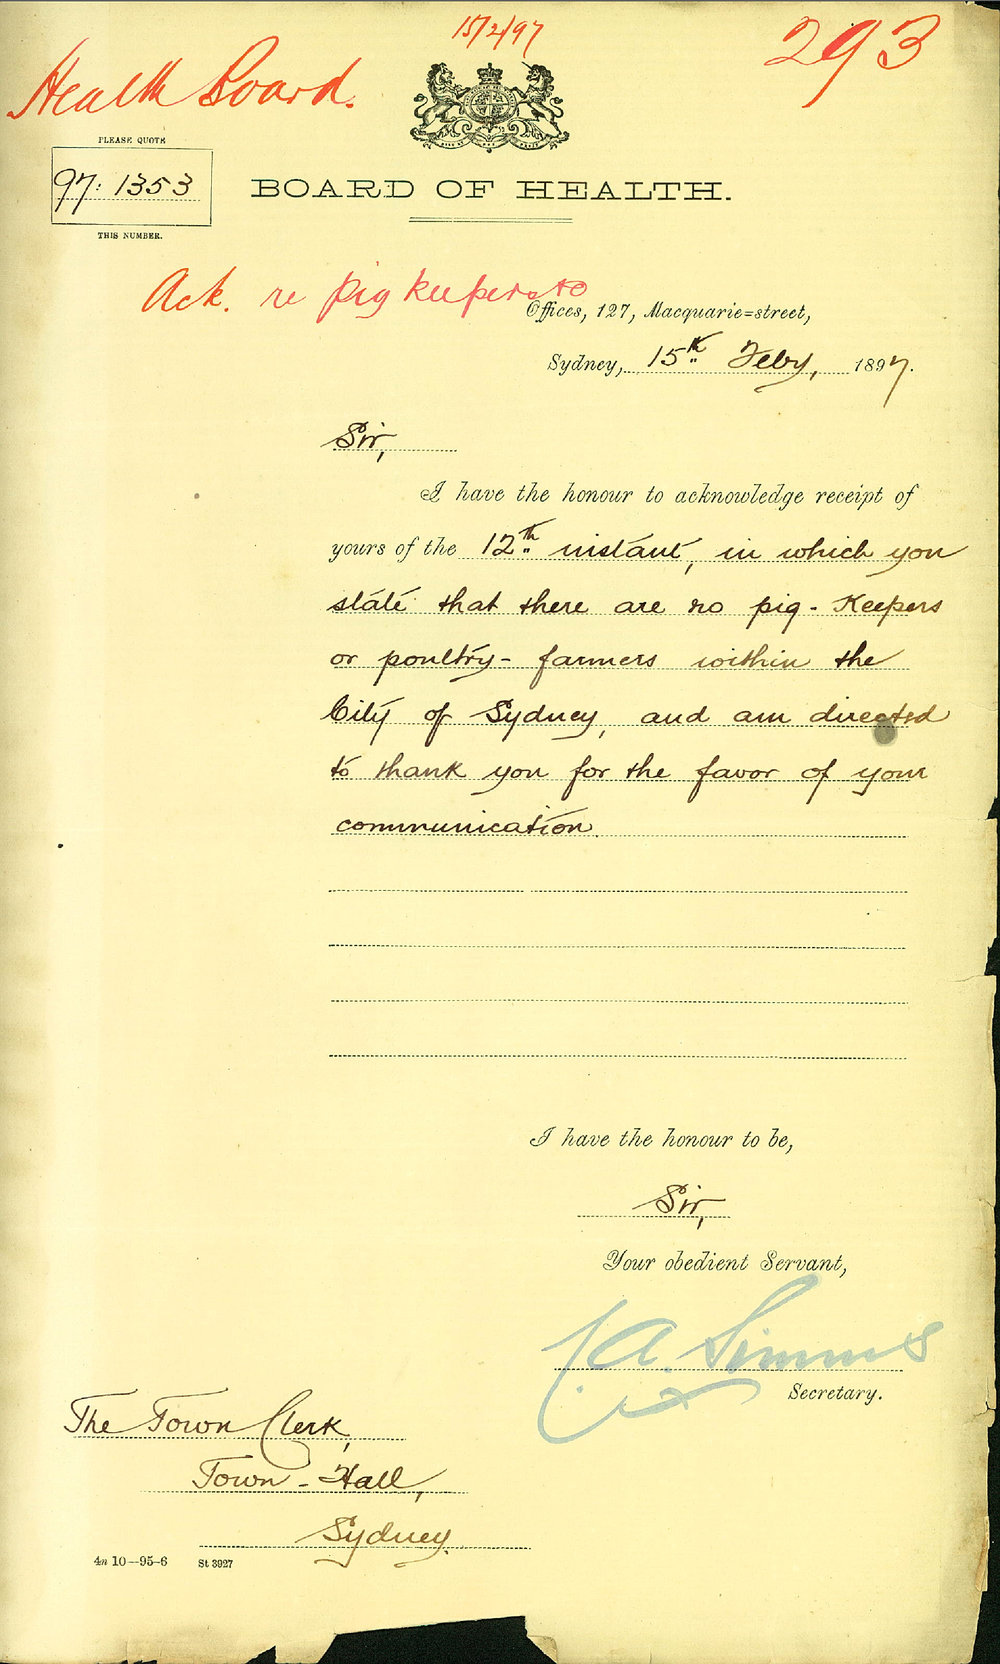 15/2/97
293
Health Board.
PLEASE QUOTE
97: 1353
THIS NUMBER.
BOARD OF HEALTH.
Ack. re pig keepers to
Offices, 127, Macquarie=street,
Sydney, 15th Feby, 1897.
Sir,
I have the honour to acknowledge receipt of
yours of the 12th instant, in which you
state that there are no pig-Keepers
or poultry-farmers within the
City of Sydney, and am directed
to thank you for the favor of your
communication.
I have the honour to be,
Sir,
Your obedient Servant,
A. Simms
Secretary.
The Town Clerk,
Town-Hall,
Sydney.
4n 10--95-6 St 3927